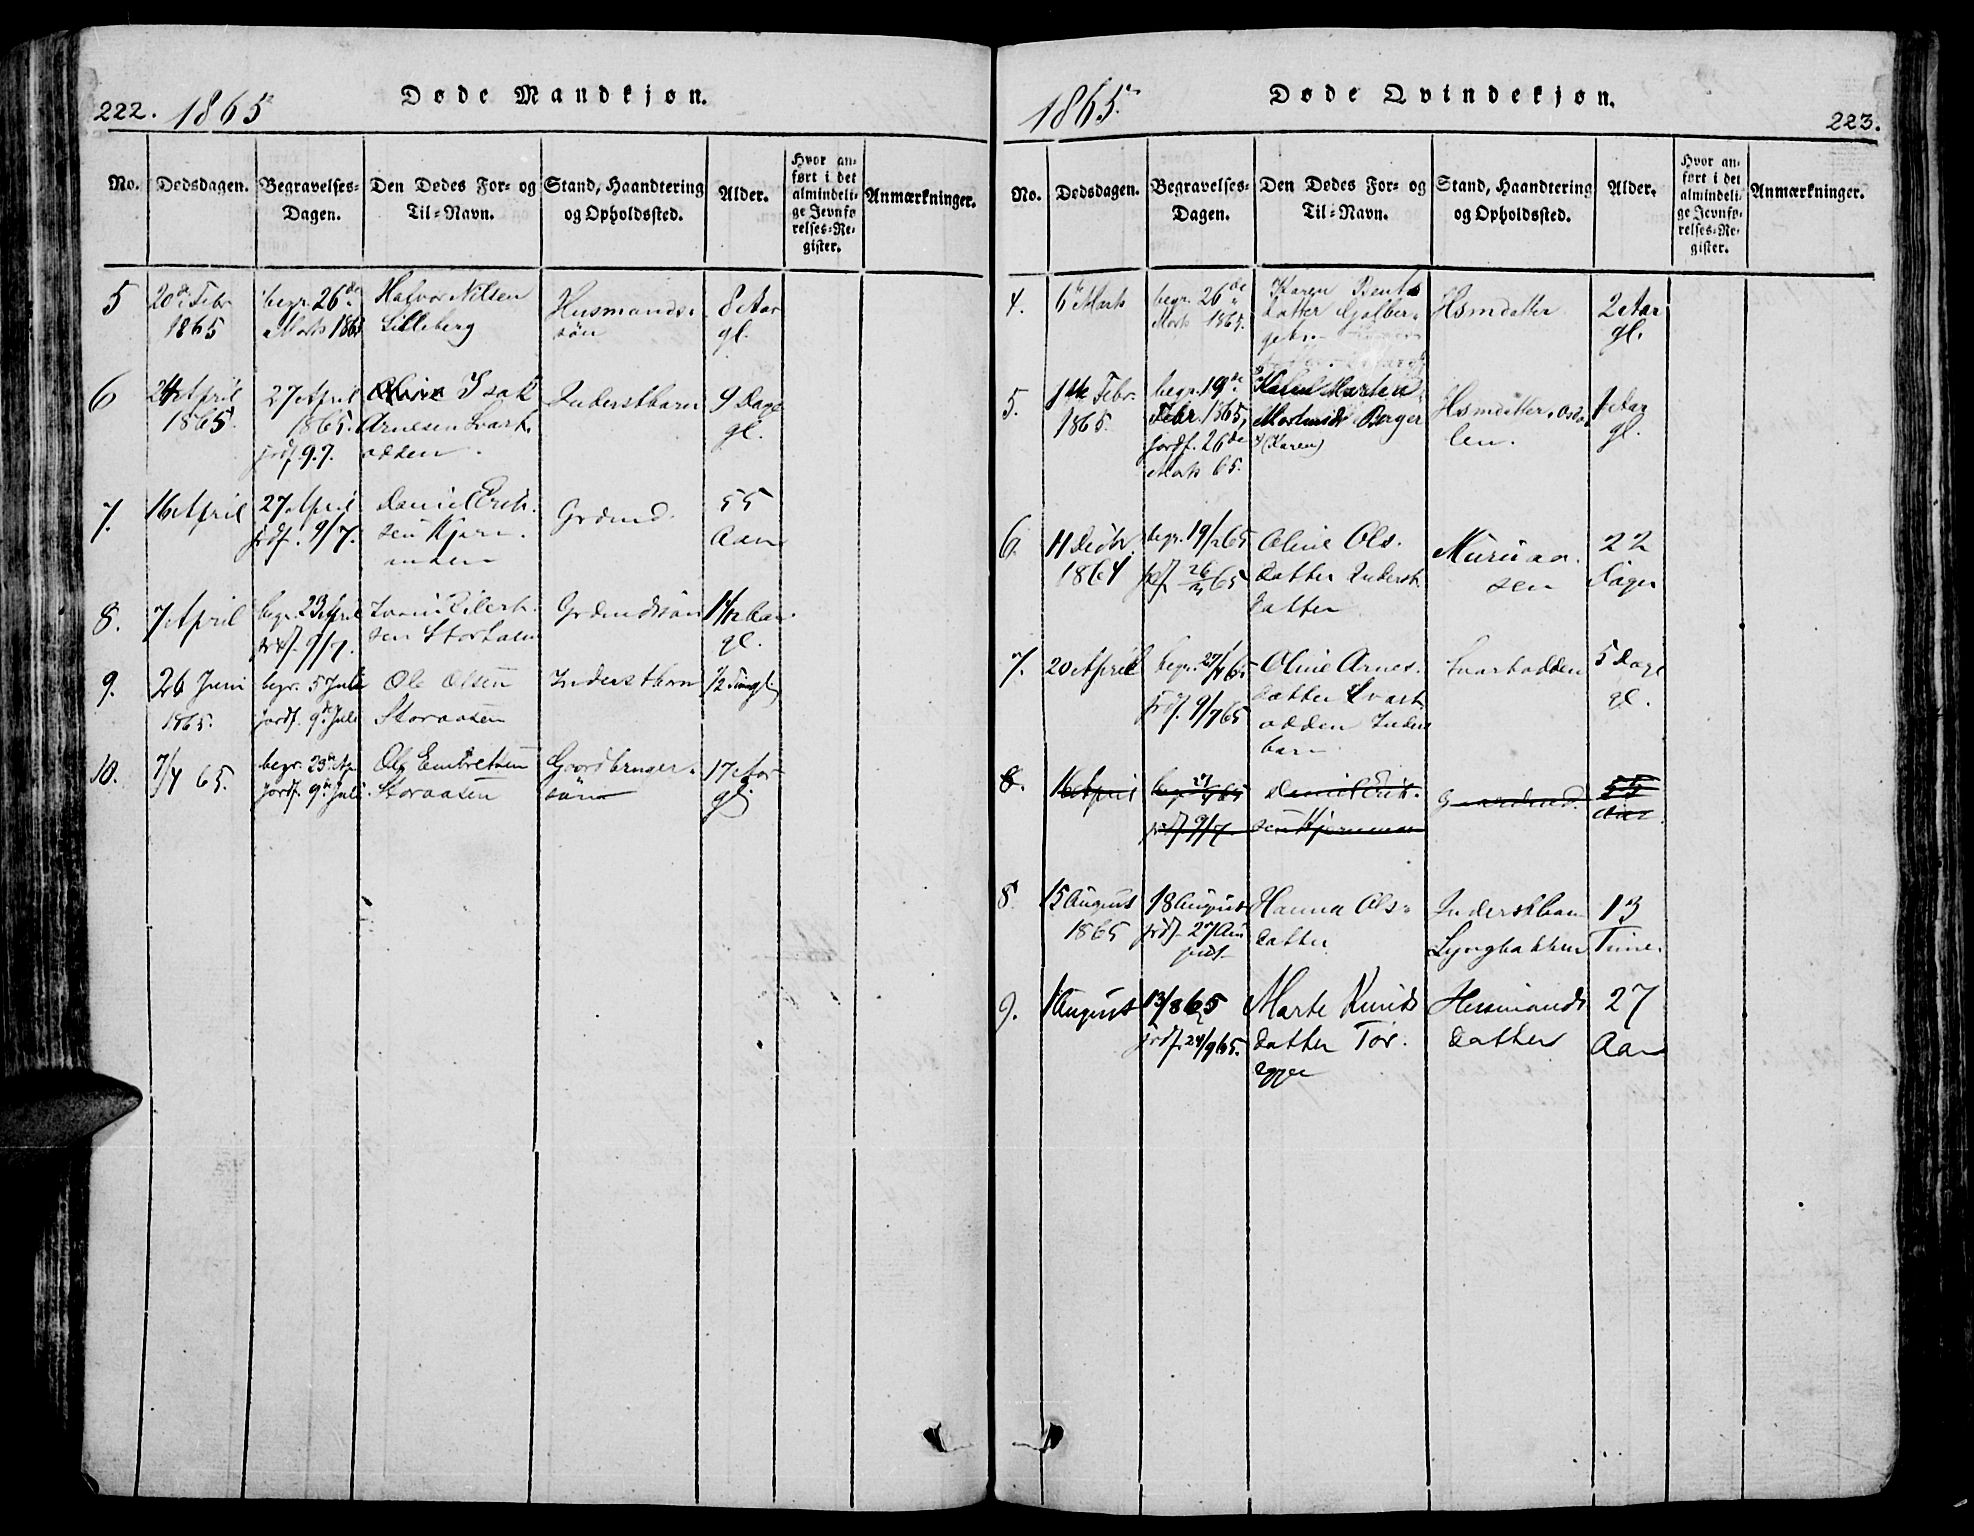 222. 1865
Døde Mandkjøn.
No.
Dødsdagen.
Begravelses-
Dagen.
Den Dødes For- og
Til-Navn.
Stand, Haandtering
og Opholdssted.
Alder.
Hvor an-
ført i det
almindeli-
ge Jevnfø-
relses-Re-
gister.
Anmærkninger.
5
20de Febr
1865
begr. 26de
Marts 1865
Halvor Nilsen
Lilleberg
Husmands-
søn
8 Aar
gl.
6
24 April
1865.
27 April
1865.
jrdf. 9.7.
Isak
Arnesen Svart-
odden.
Inderstbarn
9 Dage
gl.
7.
16 April
27 April
jrdf. 9/7.
Daniel Erik-
sen Kjern-
Grdmd.
55
Aar
8.
7 April
begr. 23 April
jrdf. 9/7.
Eilert-
sen
Grdmdssøn
gl.
9.
26 Juni
1865.
begr. 5 Juli
jordf. 9de Juli
Ole Olsen
Storaasen
Inderstbarn
1/2
10.
7/4 65.
begr. 23de Ap.
jordf. 9de Juli.
Ole Embretsen
Storaasen
Gaardbruger-
søn
17 Aar
gl.
1865.
Døde Qvindekjøn.
223.
No.
Dødsdagen.
Begravelses-
Dagen.
Den Dødes For- og
Til-Navn.
Stand, Haandtering
og Opholdssted.
Alder.
Hvor an-
ført i det
almindeli-
ge Jevnfø-
relses-Re-
gister.
Anmærkninger.
4.
6te Marts
begr. 26de
Marts 1865.
Karen Bents
datter
Hsmdatter
2 Aar
gl.
5.
Febr.
1865.
begr. 19de
Febr. 1865,
jordf. 26de
Marts 65.
Martea
Berger
(Karen)
Hsmdatter,
len.
1 Aar
gl.
6.
11 Decbr.
1864
begr. 19/2 65
jrdf. 26/3 65
Oline Ols-
datter Inderst-
datter
Muruaa-
sen
22
Dager
7.
20 April
begr. 27/4 65
jrdf. 9/7 65
Oline Arnes-
datter Svart-
odden Inderst
barn
Svartodden
5 Dage
gl.
8.
16 April
begr. 27/4 65
jrdf 9/7
Daniel Erik-
sen
Gaardmd.
55
Aar
8.
15 August
1865
18 August
jrdf. 27 Au
gust
Hanna Ols-
datter
Inderstbarn
Lyngbakken
13
Time.
9.
1 August
13/8 65
jrdf. 24/9 65.
Marte Knuds
datter Tør-
egge
Husmands
datter
27
Aar